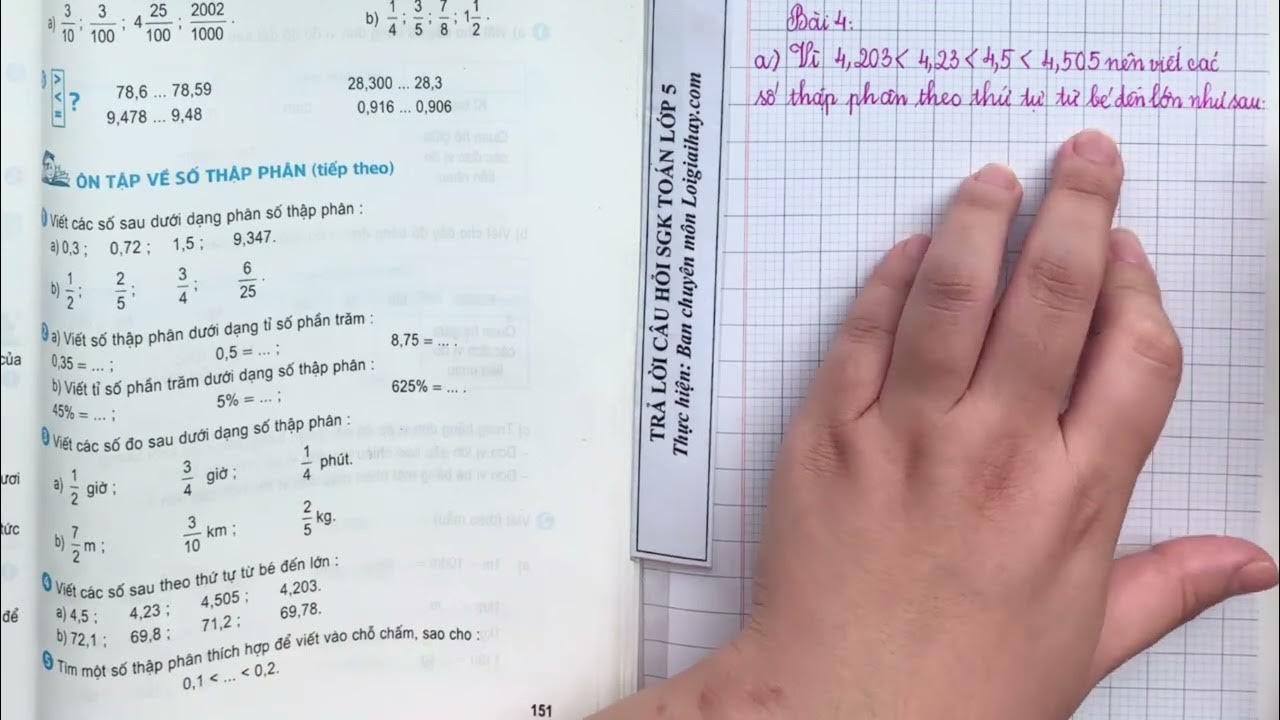 a) 3/10 ; 3/100 ; 4 25/100 ; 2002/1000 .
b) 1/4 ; 3/5 ; 7/8 ; 1 1/2 .
> < = ?
78,6 ... 78,59
28,300 ... 28,3
9,478 ... 9,48
0,916 ... 0,906
ÔN TẬP VỀ SỐ THẬP PHÂN (tiếp theo)
1 Viết các số sau dưới dạng phân số thập phân :
a) 0,3 ; 0,72 ; 1,5 ; 9,347.
b) 1/2 ; 2/5 ; 3/4 ; 6/25 .
2 a) Viết số thập phân dưới dạng tỉ số phần trăm :
0,35 = ... ; 0,5 = ... ; 8,75 = ... .
b) Viết tỉ số phần trăm dưới dạng số thập phân :
45% = ... ; 5% = ... ; 625% = ... .
3 Viết các số đo sau dưới dạng số thập phân :
a) 1/2 giờ ; 3/4 giờ ; 1/4 phút.
b) 7/2 m ; 3/10 km ; 2/5 kg.
4 Viết các số sau theo thứ tự từ bé đến lớn :
a) 4,5 ; 4,23 ; 4,505 ; 4,203.
b) 72,1 ; 69,8 ; 71,2 ; 69,78.
5 Tìm một số thập phân thích hợp để viết vào chỗ chấm, sao cho :
0,1 < ... < 0,2.
151
của
tức
để
TRẢ LỜI CÂU HỎI SGK TOÁN LỚP 5
Thực hiện: Ban chuyên môn Loigiaihay.com
Bài 4:
a) Vì 4,203 < 4,23 < 4,5 < 4,505 nên viết các
số thập phân theo thứ tự từ bé đến lớn như sau: